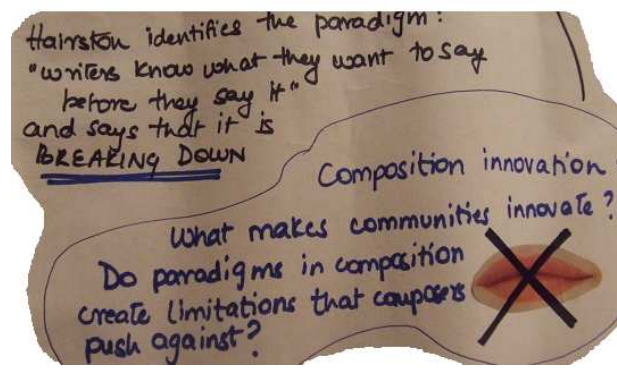 Hairston identifies the paradigm:
"writers know what they want to say
before they say it"
and says that it is
BREAKING DOWN
Composition innovation
What makes communities innovate?
Do paradigms in composition
create limitations that composers
push against?